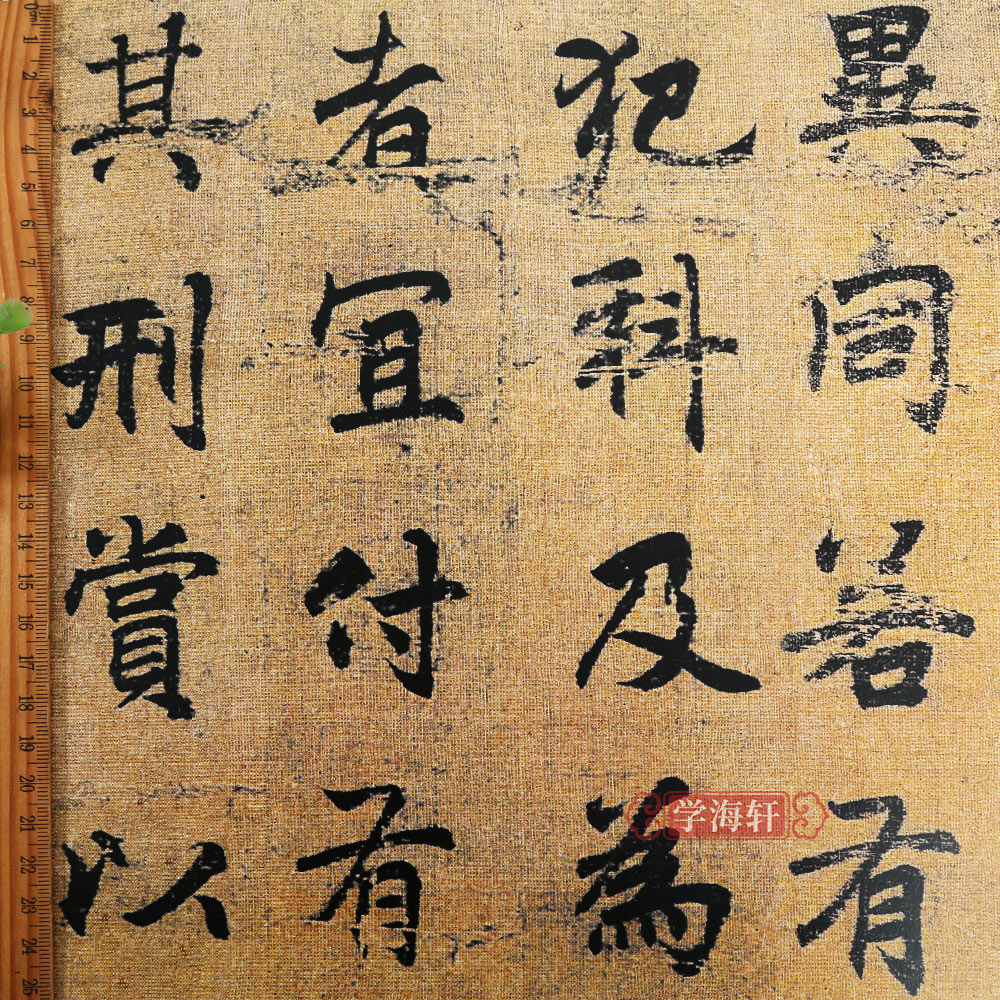 異同善有
犯科及為
者宜付有
其刑賞以
学海轩
0㎝ 1 2 3 4 5 6 7 8 9 10 11 12 13 14 15 16 17 18 19 20 21 22 23 24 25